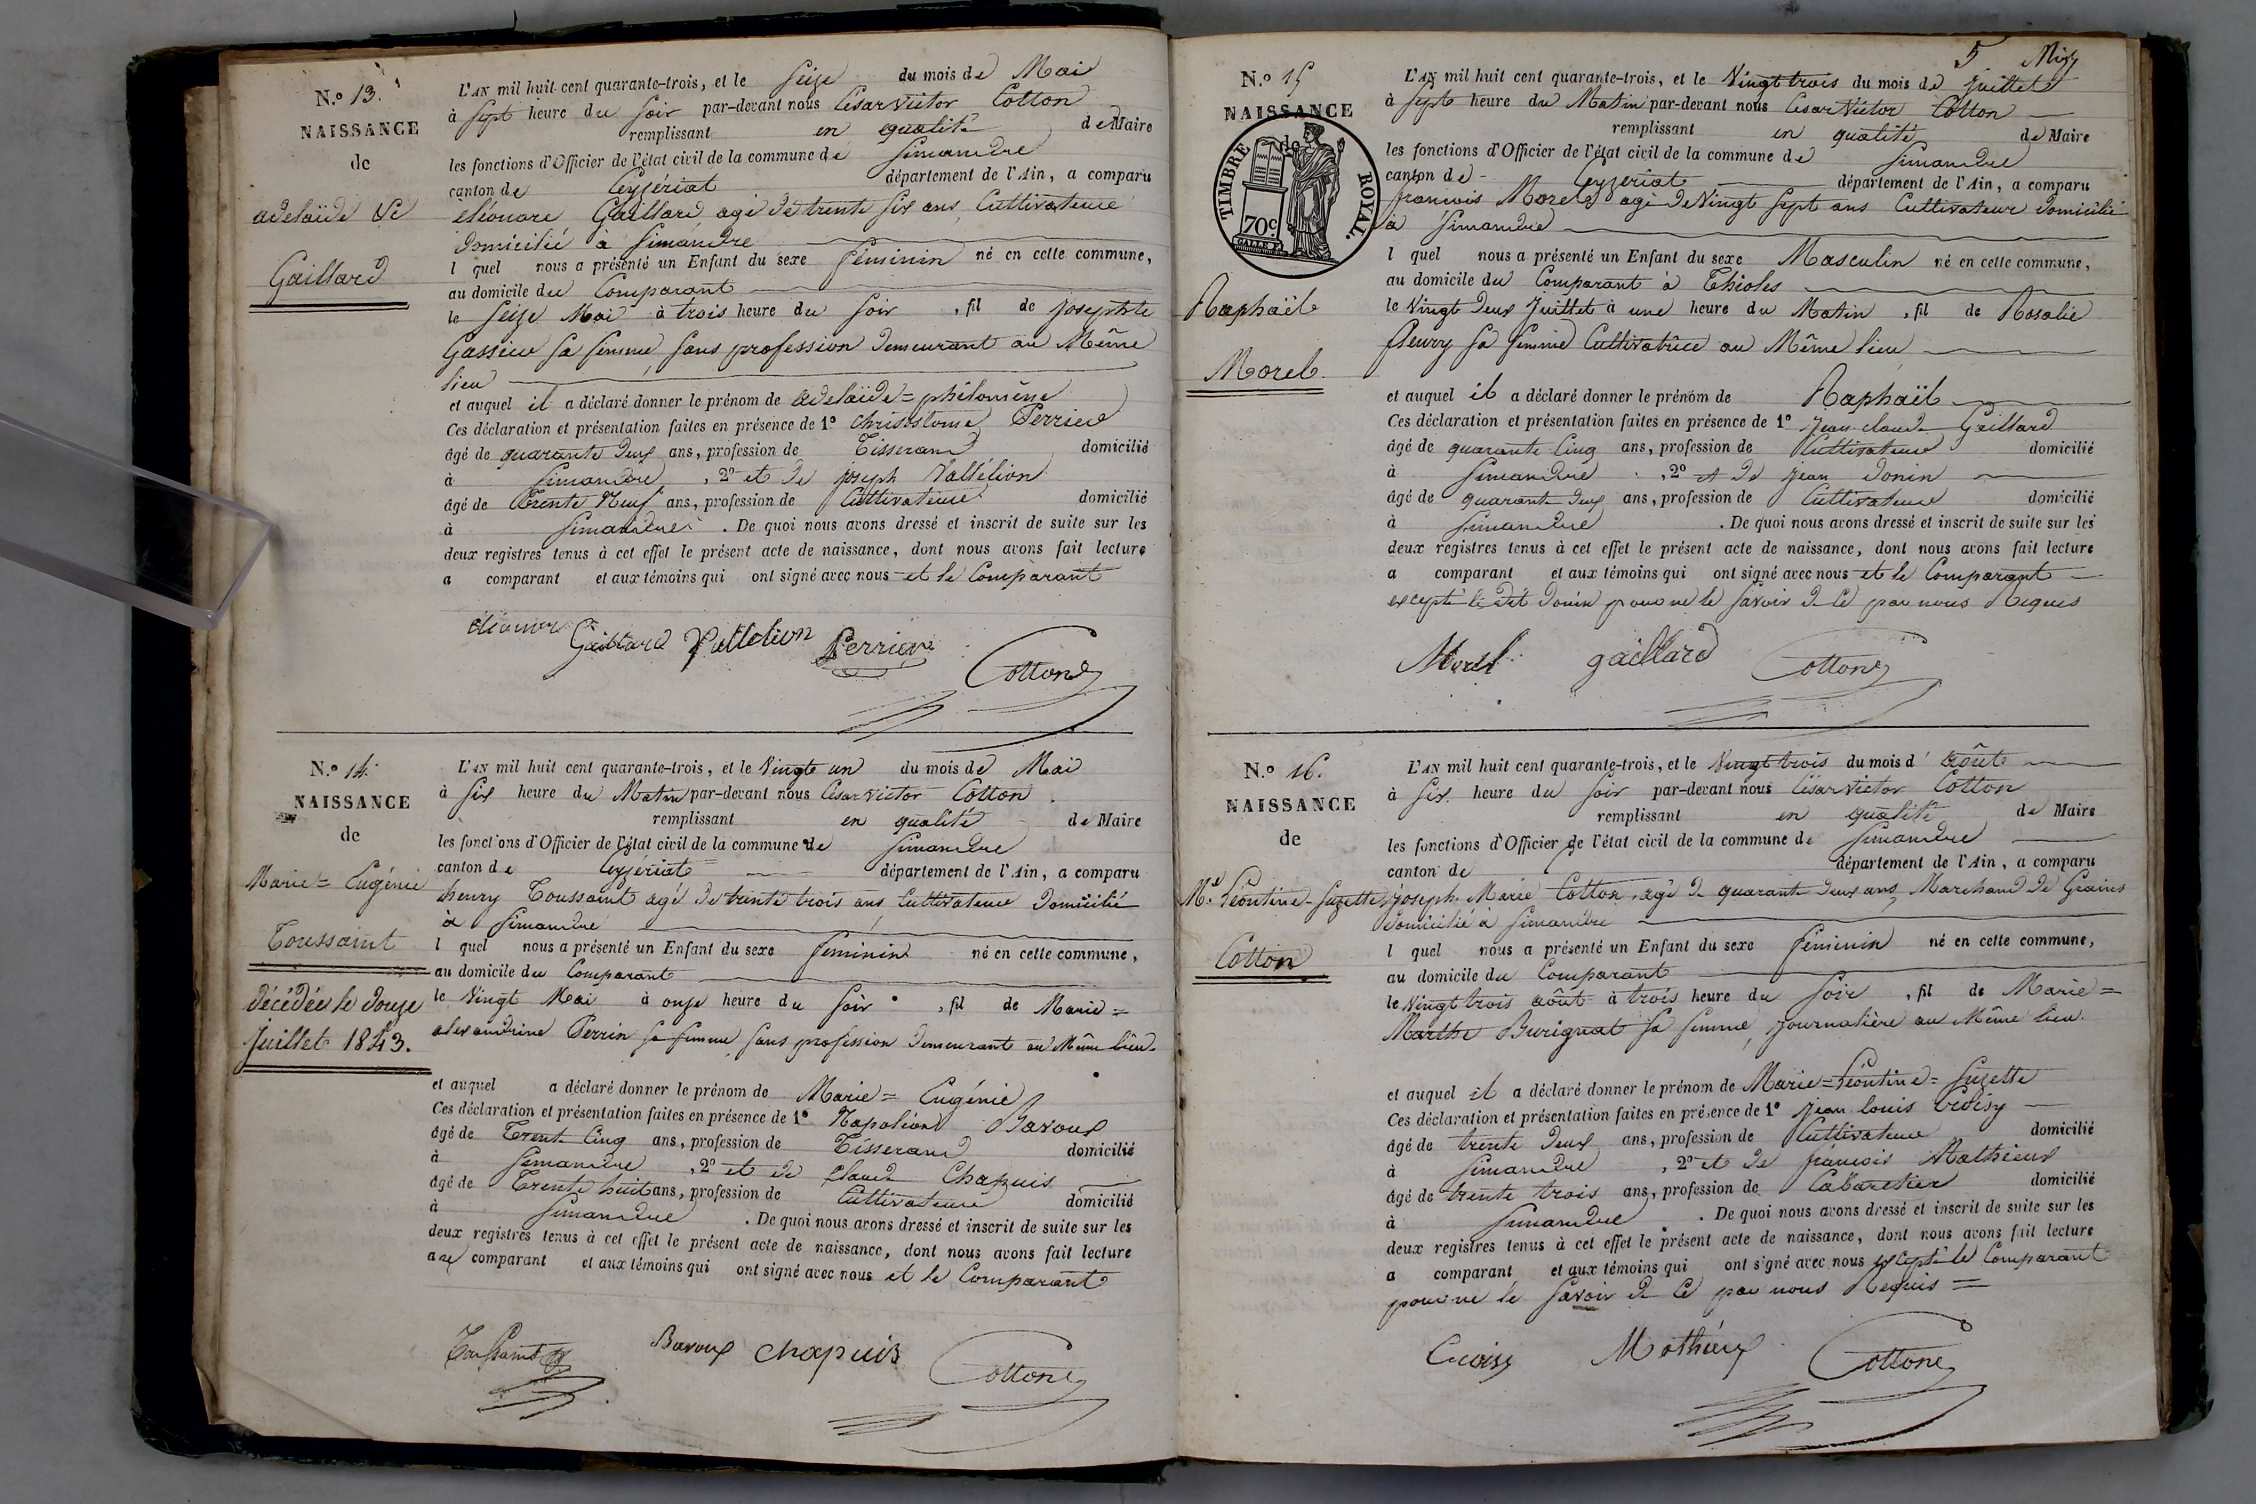 N.o 13.
NAISSANCE
de
adelaïde Se
Gaillard
L'AN mil huit cent quarante-trois, et le Seize du mois de Mai
à Sept heure du Soir par-devant nous César Victor Cotton
remplissant en qualité de Maire
les fonctions d'Officier de l'état civil de la commune de Simandre
canton de Ceyzériat département de l'Ain, a comparu
éléonore Gaillard agé de trente six ans, Cultivateur
domicilié à Simandre
l quel nous a présenté un Enfant du sexe féminin né en cette commune,
au domicile du Comparant
le Seize Mai à trois heure du Soir, fil de josephte
Gassieu sa femme sans profession demeurant au Même
lieu
et auquel il a déclaré donner le prénom de adelaïde=philomène
Ces déclaration et présentation faites en présence de 1o Chrisostome Perrier
âgé de quarante deux ans, profession de Tisserand domicilié
à Simandre, 2o et de joseph Vallélion
âgé de Trente Neuf ans, profession de Cultivateur domicilié
à Simandre. De quoi nous avons dressé et inscrit de suite sur les
deux registres tenus à cet effet le présent acte de naissance, dont nous avons fait lecture
a comparant et aux témoins qui ont signé avec nous et le Comparant
Gaillard Valletion Perrier
Cotton
N.o 14.
NAISSANCE
de
Marie=Eugénie
Toussaint
décédée le douze
juillet 1843.
L'AN mil huit cent quarante-trois, et le Vingt un du mois de Mai
à Six heure du Matin par-devant nous César victor Cotton
remplissant en qualité de Maire
les fonctions d'Officier de l'état civil de la commune de Simandre
canton de Ceyzériat département de l'Ain, a comparu
henry Toussaint agé de trente trois ans Cultivateur domicilié
à Simandre
l quel nous a présenté un Enfant du sexe féminin né en cette commune,
au domicile du Comparant
le Vingt Mai à onze heure du Soir, fil de Marie=
alexandrine Perrin sa femme sans profession demeurant au Même lieu
et auquel a déclaré donner le prénom de Marie=Eugénie
Ces déclaration et présentation faites en présence de 1o Napoléon Bavoux
âgé de Trente Cinq ans, profession de Tisserand domicilié
à Simandre, 2o et de Claude Chapuis
âgé de Trente huit ans, profession de Cultivateur domicilié
à Simandre. De quoi nous avons dressé et inscrit de suite sur les
deux registres tenus à cet effet le présent acte de naissance, dont nous avons fait lecture
au comparant et aux témoins qui ont signé avec nous et le Comparant
Toussaint Bavoux chapuis Cotton
5
N.o 15
NAISSANCE
de
TIMBRE ROYAL.
70c.
Raphaël
Morel
L'AN mil huit cent quarante-trois, et le Vingt trois du mois de juillet
à Sept heure du Matin par-devant nous César Victor Cotton
remplissant en qualité de Maire
les fonctions d'Officier de l'état civil de la commune de Simandre
canton de Ceyzeriat département de l'Ain, a comparu
françois Morel agé de Vingt Sept ans Cultivateur domicilié
à Simandre
l quel nous a présenté un Enfant du sexe Masculin né en cette commune,
au domicile du Comparant à Thioles
le Vingt deux juillet à une heure du Matin, fil de Rosalie
fleury sa femme Cultivatrice au Même lieu
et auquel il a déclaré donner le prénom de Raphaël
Ces déclaration et présentation faites en présence de 1o jean claude Gaillard
âgé de quarante Cinq ans, profession de Cultivateur domicilié
à Simandre, 2o et de jean Donin
âgé de quarante deux ans, profession de Cultivateur domicilié
à Simandre. De quoi nous avons dressé et inscrit de suite sur les
deux registres tenus à cet effet le présent acte de naissance, dont nous avons fait lecture
a comparant et aux témoins qui ont signé avec nous et le Comparant
excepté le dit Donin pour ne le savoir de Ce par nous Requis
Morel gaillard Cotton
N.o 16.
NAISSANCE
de
Me Léontine-Suzette
Cotton
L'AN mil huit cent quarante-trois, et le Vingt trois du mois d' août
à Six heure du Soir par-devant nous César victor Cotton
remplissant en qualité de Maire
les fonctions d'Officier de l'état civil de la commune de Simandre
canton de département de l'Ain, a comparu
joseph Marie Cotton, agé de quarante deux ans, Marchand de Grains
domicilié à Simandre
l quel nous a présenté un Enfant du sexe féminin né en cette commune,
au domicile du Comparant
le Vingt trois août à trois heure du Soir, fil de Marie=
Marthe Burignat sa femme, journalière au Même lieu
et auquel il a déclaré donner le prénom de Marie=Léontine=Suzette
Ces déclaration et présentation faites en présence de 1o jean louis Croisy
âgé de trente deux ans, profession de Cultivateur domicilié
à Simandre, 2o et de françois Mathieux
âgé de trente trois ans, profession de Cabaretier domicilié
à Simandre. De quoi nous avons dressé et inscrit de suite sur les
deux registres tenus à cet effet le présent acte de naissance, dont nous avons fait lecture
a comparant et aux témoins qui ont signé avec nous excepté le Comparant
pour ne le savoir de Ce par nous Requis =
Croisy Mathieux Cotton